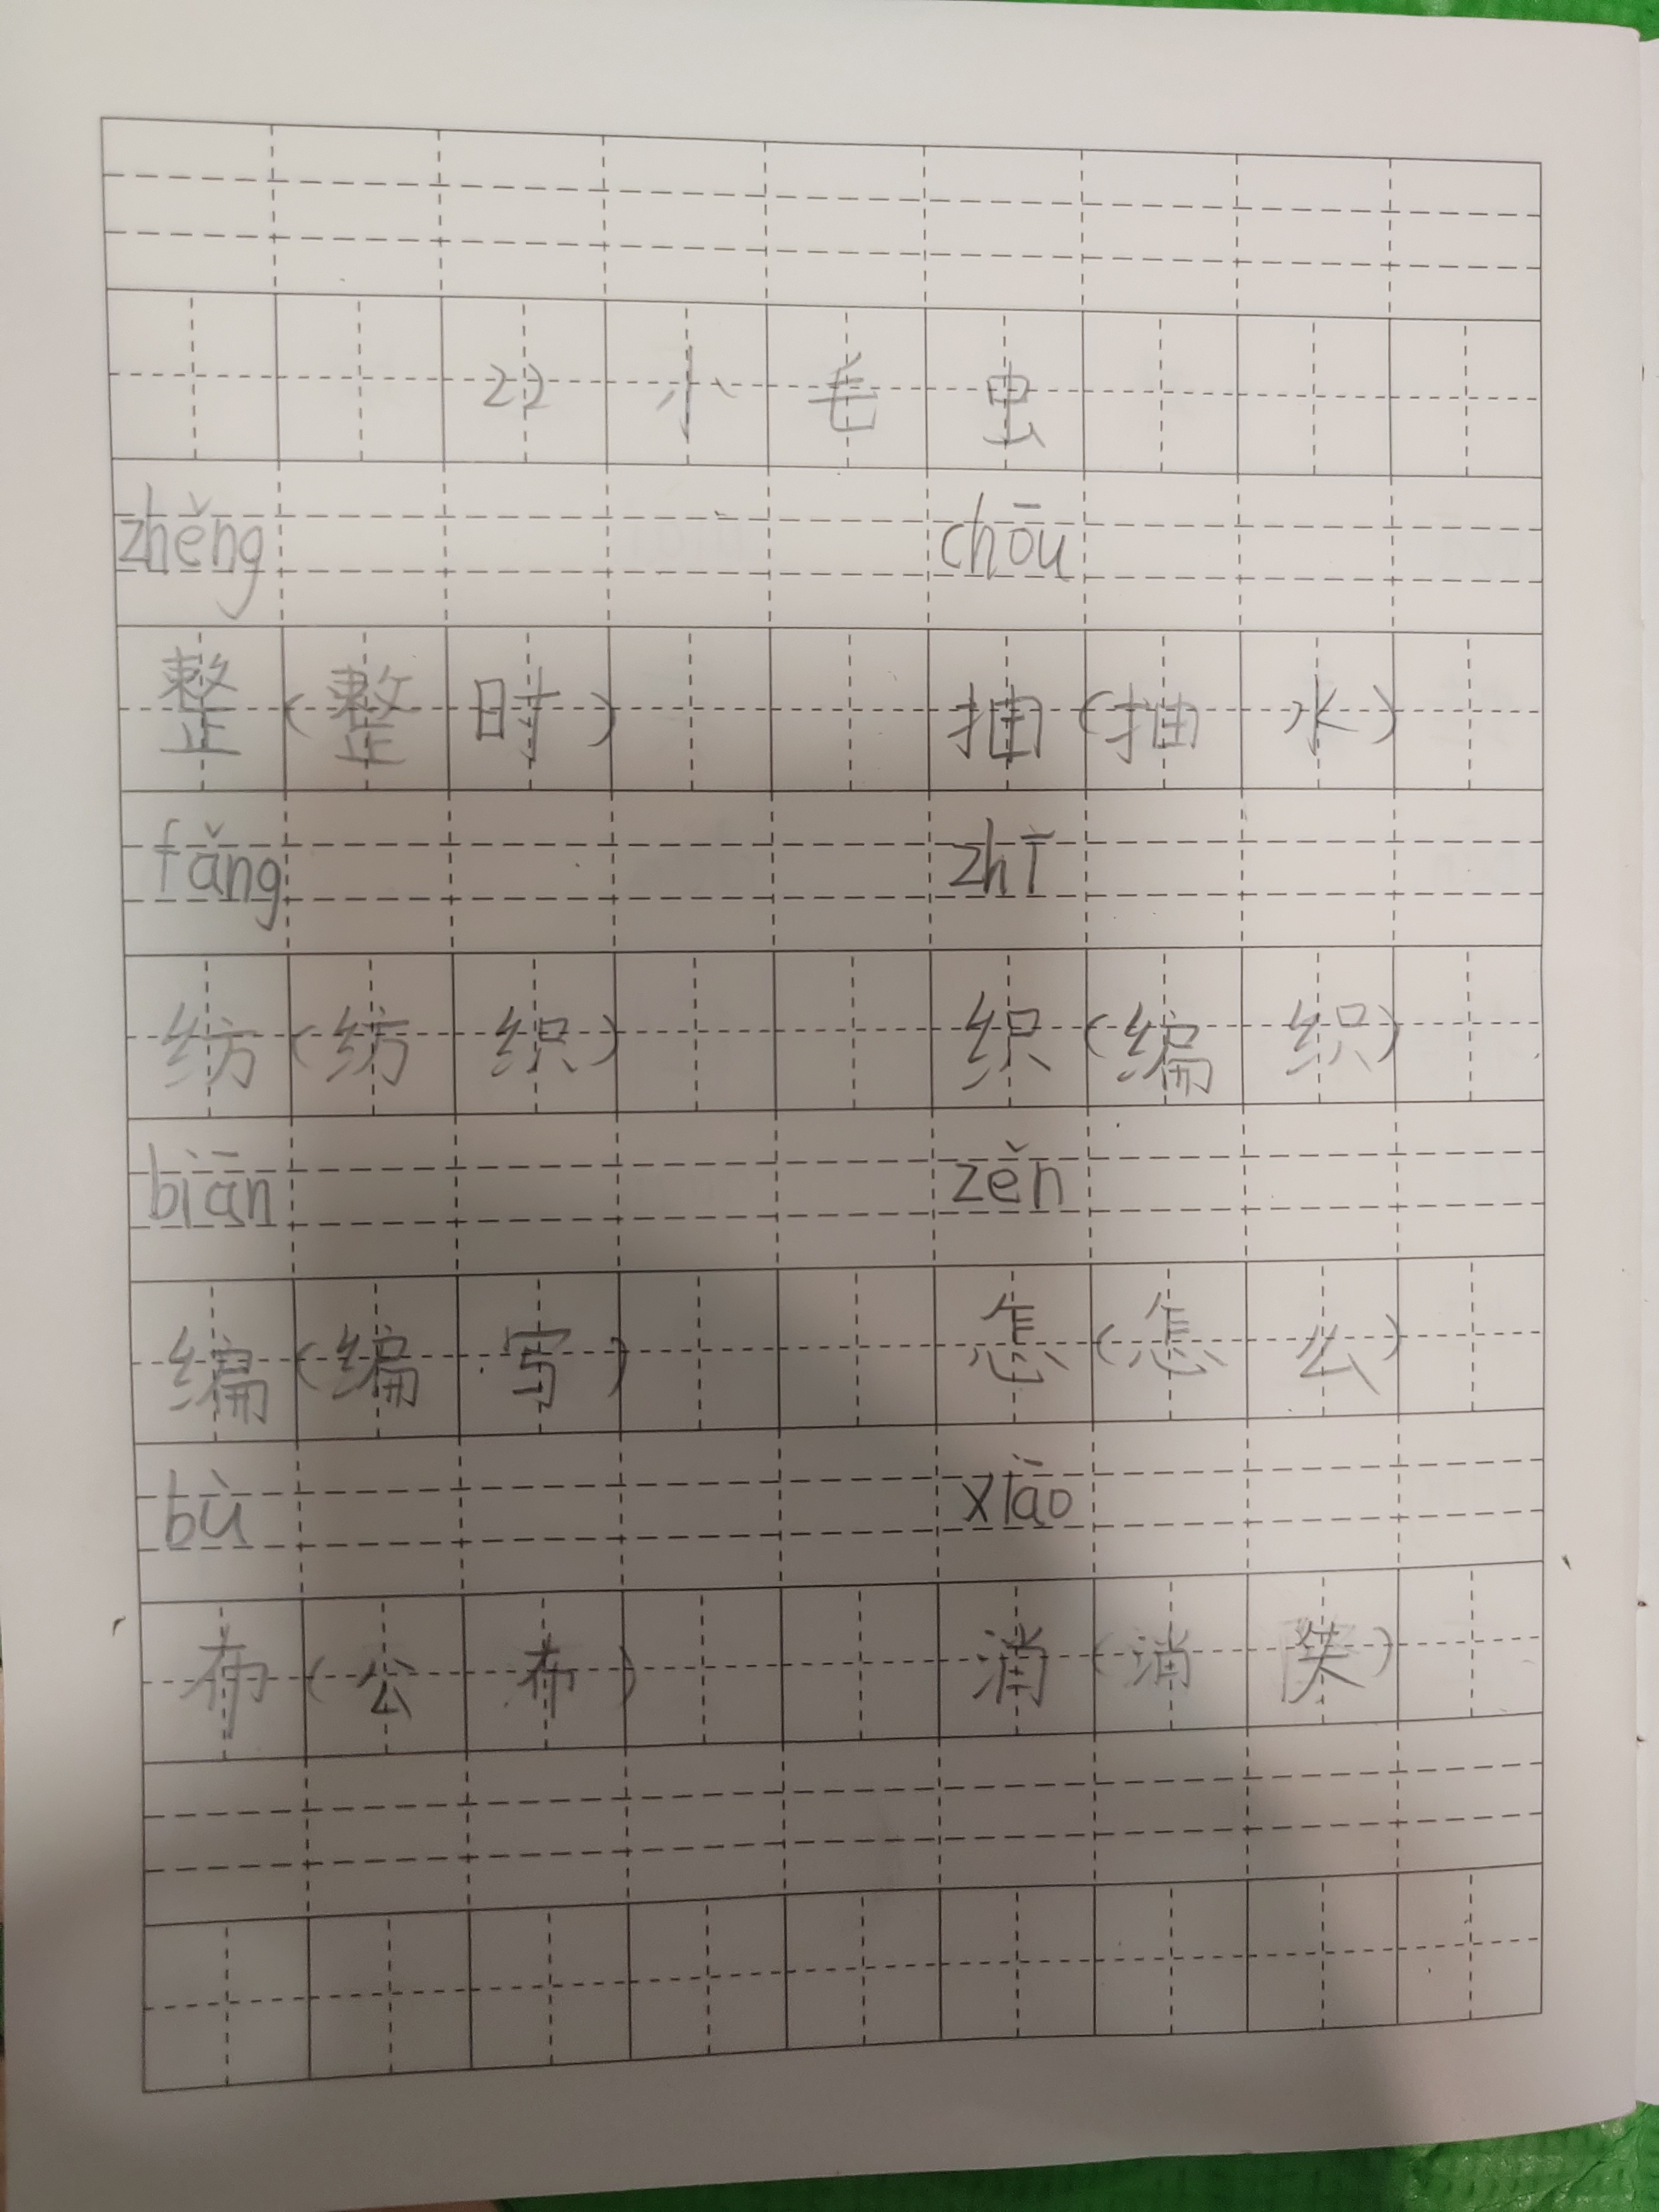 22 小毛虫
zhěng chōu
整(整时) 抽(抽水)
fǎng zhī
纺(纺织) 织(编织)
biān zěn
编(编写) 怎(怎么)
bù xiāo
布(公布) 消(消失)